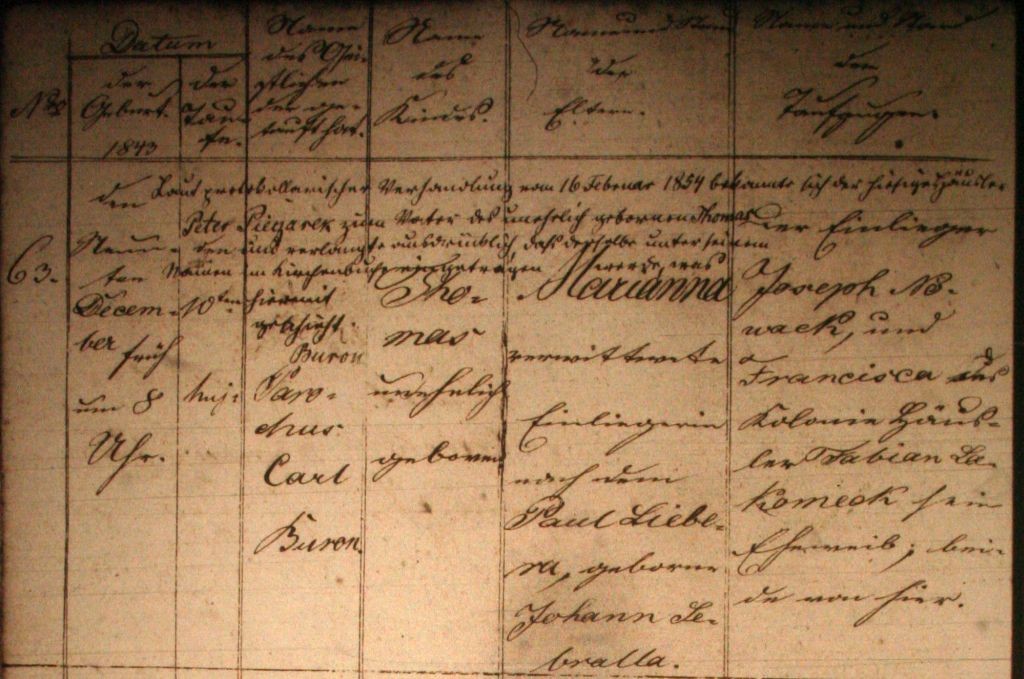 Nro
Datum
der
Geburt.
1843
der
Tau-
fe.
Name
des Gei-
stlichen
der ge-
tauft hat.
Name
des
Kindes.
Name und Stand
der
Eltern.
Name und Stand
der
Taufzeugen.
Laut protokollarischer Verhandlung vom 16 Februar 1854 bekannte sich der hiesige Häusler
Peter Piegarek zum Vater des unehelich gebornen Thomas
und verlangte ausdrücklich, daß derselbe unter seinem
Namen im Kirchenbuche eingetragen werde, was
hiermit
geschieht.
Buron
63.
den
Neun-
ten
Decem-
ber früh
um 8
Uhr.
den
10ten
huj:
Paro-
chus
Carl
Buron.
Tho-
mas
unehelich
geboren
Marianna
verwittwete
Einliegerin
nach dem
Paul Liebe-
ra, geborne
Johann Le-
bralla.
Der Einlieger
Joseph No-
wack, und
Francisca des
Kolonie Häus-
ler Fabian La-
komeck sein
Eheweib; bei-
de von hier.